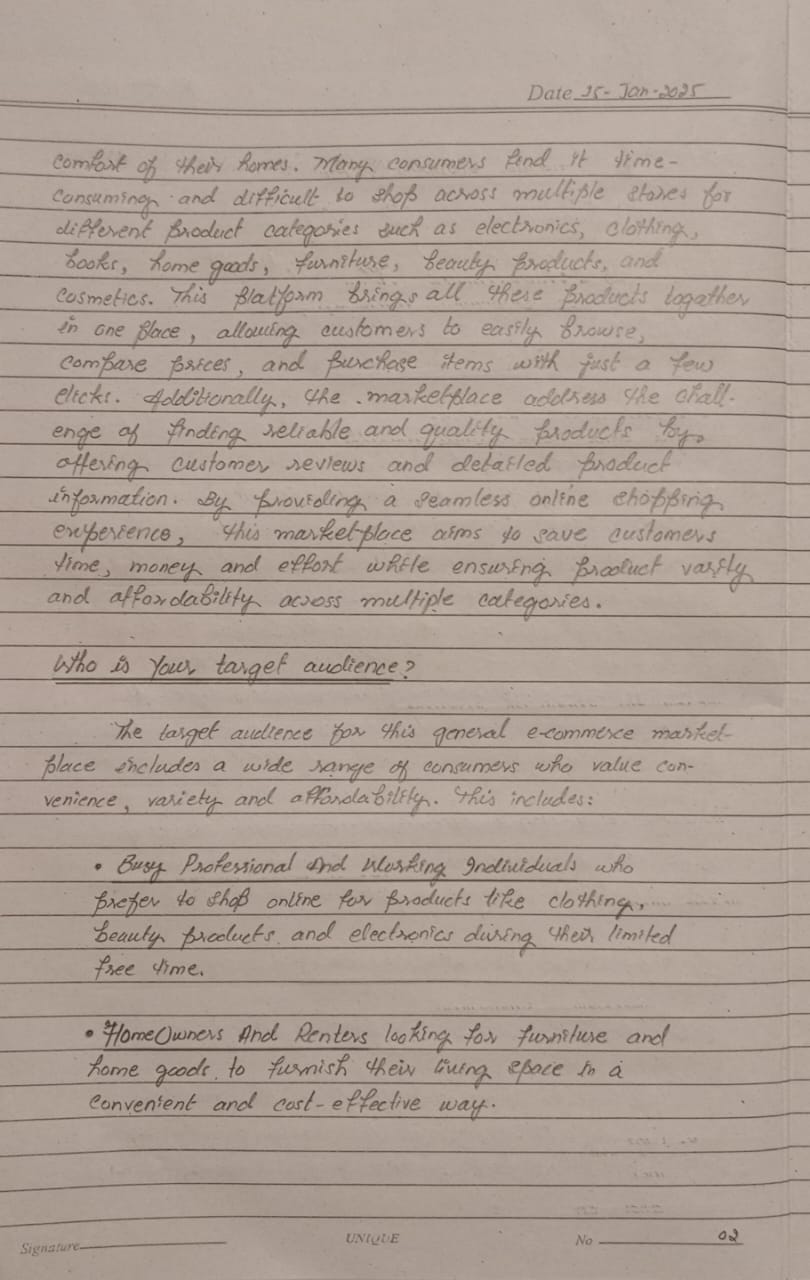 Date 15-Jan-2025
comfort of their homes. Many consumers find it time-
consuming and difficult to shop across multiple stores for
different product categories such as electronics, clothing,
books, home goods, furniture, beauty products, and
cosmetics. This platform brings all these products togather
in one place, allowing customers to easily browse,
compare prices, and purchase items with just a few
clicks. Additionally, the marketplace address the chall-
enge of finding reliable and quality products by
offering customer reviews and detailed product
information. By providing a seamless online shopping
experience, this marketplace aims to save customers
time, money and effort while ensuring product varity
and affordability across multiple categories.
Who is Your target audience?
The target audience for this general e-commerce market-
place includes a wide range of consumers who value con-
venience, variety and affordability. This includes:
• Busy Professional And Working Individuals who
prefer to shop online for products like clothing,
beauty products and electronics during their limited
free time.
• HomeOwners And Renters looking for furniture and
home goods to furnish their living space in a
convenient and cost-effective way.
Signature UNIQUE No 02